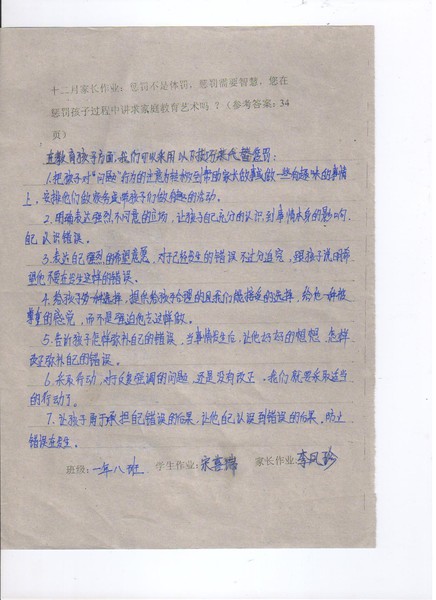 十二月家长作业：惩罚不是体罚，惩罚需要智慧，您在
惩罚孩子过程中讲求家庭教育艺术吗？（参考答案：34
页）
在教育孩子方面，我们可以采用以下技巧来代替惩罚：
1.把孩子对“问题”行为的注意力转移到帮助家长做事或做一些有趣味的事情
上，安排他们做家务或带孩子们做有趣的活动。
2.明确表达强烈不同意的立场，让孩子自己充分的认识到事情本身的影响，
自己认识错误。
3.表达自己强烈的希望意愿，对于已经发生的错误不过分追究，跟孩子说明希
望他不要在发生这样的错误。
4.给孩子另一种选择，提供给孩子合理的且我们能接受的选择，给他一种被
尊重的感觉，而不是强迫他去这样做。
5.告诉孩子怎样弥补自己的错误，当事情发生后，让他好好的想想，怎样
改正弥补自己的错误。
6.采取行动，对于反复强调的问题，还是没有改正，我们就要采取适当
的行动了。
7.让孩子勇于承担自己错误的后果，让他自己认识到错误的后果，防止
错误在发生。
班级：一年八班 学生作业：宋喜瑞 家长作业：李凤珍